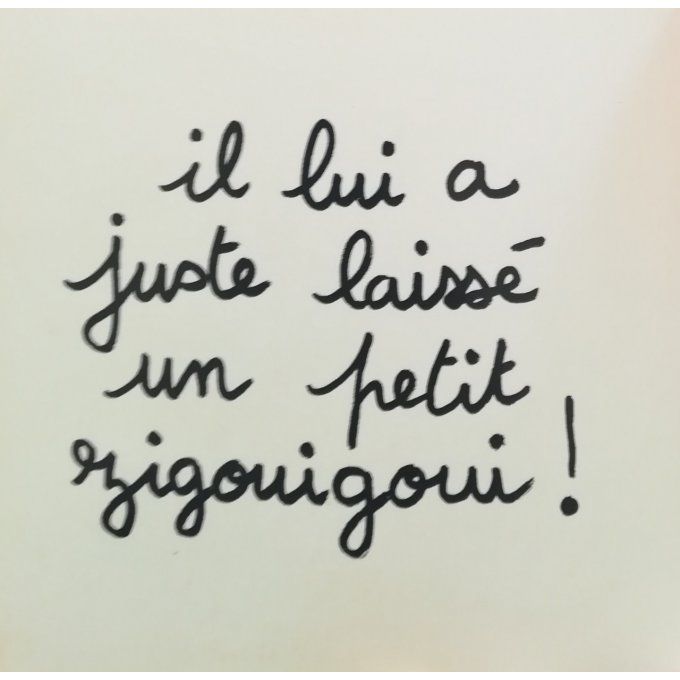 il lui a
juste laissé
un petit
zigouigoui !